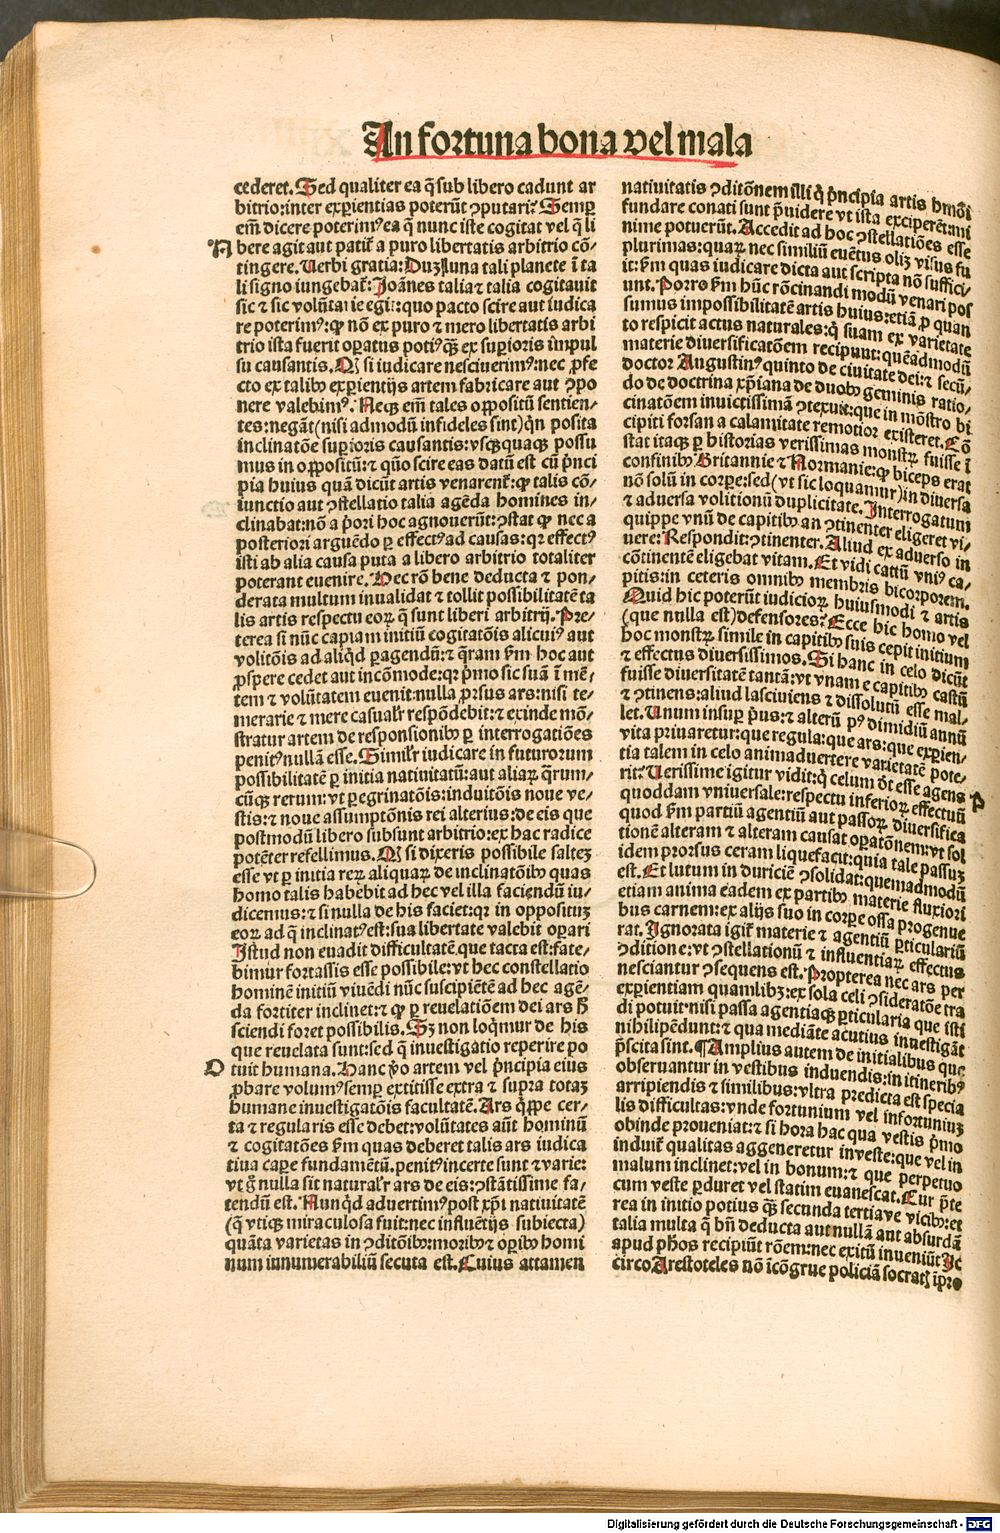 An fortuna bona vel mala
cederet. Sed qualiter ea q̄ sub libero cadunt ar
bitrio: inter exp̱ientias poterūt ɔputari? Semꝑ
em̄ dicere poterimꝰ ea q̄ nunc iste cogitat vel q̄ li
N
bere agit aut patiť a puro libertatis arbitrio cō⸗
tingere. Verbi gratia: Duȝ luna tali planete ī ta
li signo iungebať: Joānes talia ⁊ talia cogitauit
sic ⁊ sic volūtarie egit: quo pacto scire aut iudica
re poterimꝰ: ꝙ nō ex puro ⁊ mero libertatis arbi
trio ista fuerit oꝑatus potiꝰ q̄ȝ ex suꝑioris impul
su causantis. Qȝ si iudicare nesciuerimꝰ: nec ꝓfe
cto ex talibꝰ exꝑientijs artem fabricare aut ɔpo
nere valebimꝰ. Neqȝ em̄ tales oppositū sentien⸗
tes: negāt (nisi admodū infideles sint) qn̄ posita
inclinatōe suꝑioris causantis: vsqȝquaqȝ possu
mus in oppositū: ⁊ quō scire eas datū est cū pn̄ci
pia huius quā dicūt artis venarenť: ꝙ talis cō⸗
iunctio aut ɔstellatio talia agēda homines in⸗
clinabat: nō a p̄ori hoc agnouerūt: ɔstat ꝙ nec a
posteriori arguēdo ꝑ effectꝰ ad causas: qꝛ effectꝰ
isti ab alia causa puta a libero arbitrio totaliter
poterant euenire. Hec rō bene deducta ⁊ pon⸗
derata multum inualidat ⁊ tollit possibilitatē ta
lis artis respectu eoꝝ q̄ sunt liberi arbitrij. Pre⸗
terea si nūc capiam initiū cogitatōis alicuiꝰ aut
volitōis ad aliqd̄ ꝑagendū: ⁊ q̄ram ẜm hoc aut
ꝓspere cedet aut incōmode: qꝛ p̄mo sic suā ī mē⸗
tem ⁊ volūtatem euenit: nulla ꝓrsus ars: nisi te⸗
merarie ⁊ mere casualiť respōdebit: ⁊ exinde mō⸗
stratur artem de responsionibꝰ ꝑ interrogatiōes
penitꝰ nullā esse. Similiť iudicare in futurorum
possibilitatē ꝑ initia natiuitatū: aut aliaꝝ q̄rum⸗
cūqȝ rerum: vt ꝑegrinatōis: induitōis noue ve⸗
stis: ⁊ noue assumptōnis rei alterius: de eis que
postmodū libero subsunt arbitrio: ex hac radice
potēter refellimus. Qȝ si dixeris possibile salteȝ
esse vt ꝑ initia reꝝ aliquaꝝ de inclinatōibꝰ quas
homo talis habebit ad hec vel illa faciendū iu⸗
dicemus: ⁊ si nulla de his faciet: qꝛ in oppositum
eoꝝ ad q̄ inclinatꝰ est: sua libertate valebit oꝑari
Istud non euadit difficultatē que tacta est: fate⸗
bimur fortassis esse possibile: vt hec constellatio
hominē initiū viuēdi nūc suscipiētē ad hec agē⸗
da fortiter inclinet: ⁊ ꝙ ꝑ reuelatiōem dei ars ħ
sciendi foret possibilis. Sȝ non loqmur de his
que reuelata sunt: sed q̄ inuestigatio reperire po
O
tuit humana. Hanc ṽo artem vel pn̄cipia eius
ꝓbare volumꝰ semꝑ extitisse extra ⁊ supra totaȝ
humane inuestigatōis facultatē. Ars q̄ppe cer⸗
ta ⁊ regularis esse debet: volūtates aūt hominū
⁊ cogitatōes ẜm quas deberet talis ars iudica
tiua caꝑe fundamētū. penitꝰ incerte sunt ⁊ varie:
vt g̊ nulla sit naturaliť ars de eis: ɔstātissime fa⸗
tendū est. Nunqd̄ aduertimꝰ post xp̄i natiuitatē
(q̄ vtiqȝ miraculosa fuit: nec influētijs subiecta)
quāta varietas in ɔditōibꝰ: moribꝰ ⁊ oꝑibꝰ homi
num innumerabiliū secuta est. Cuius attamen
natiuitatis ɔditōnem illi q̄ pn̄cipia artis hm̄oi
fundare conati sunt p̄uidere vt ista exciperēt: mi
nime potuerūt. Accedit ad hoc ɔstellatiōes esse
plurimas: quaꝝ nec similiū euētus olim visus fu
it: ẜm quas iudicare dicta aut scripta nō suffici⸗
unt. Porro ẜm hūc rōcinandi modū venari pos
sumus impossibilitatē artis huius: etiā ꝓ quan
to respicit actus naturales: q̄ suam ex varietate
materie diuersificatōem recipiunt: quēadmodū
doctor Augustinꝰ quinto de ciuitate dei: ⁊ secū⸗
do de doctrina xp̄iana de duobꝰ geminis ratio⸗
cinatōem inuictissimā ɔtexuit: que in mōstro bi
cipiti forsan a calamitate remotior existeret. Cō
stat itaqȝ ꝑ historias verissimas monstꝝ fuisse ī
confinibꝰ Britannie ⁊ Normanie: ꝙ biceps erat
nō solū in corpe: sed (vt sic loquamur) in diuersa
⁊ aduersa volitionū duplicitate. Interrogatum
quippe vnū de capitibꝰ an ɔtinenter eligeret vi⸗
uere: Respondit: ɔtinenter. Aliud ex aduerso in
cōtinentē eligebat vitam. Et vidi cattū vniꝰ ca⸗
pitis: in ceteris omnibꝰ membris bicorporem.
Quid hic poterūt iudicioꝝ huiusmodi ⁊ artis
(que nulla est) defensores? Ecce hic homo vel
hoc monstꝝ simile in capitibꝰ suis cepit initium
⁊ effectus diuersissimos. Si hanc in celo dicūt
fuisse diuersitatē tantā: vt vnam e capitibꝰ castū
⁊ ɔtinens: aliud lasciuiens ⁊ dissolutū esse mal⸗
let. Unum insuꝑ p̄us: ⁊ alterū pꝰ dimidiū annū
vita priuaretur: que regula: que ars: que exꝑien⸗
tia talem in celo animaduertere varietatē pote⸗
rit? Verissime igitur vidit: q̄ celum dr̄t esse agens
P
quoddam vniuersale: respectu inferioꝝ effectuū
quod ẜm partiū agentiū aut passoꝝ diuersifica
tionē alteram ⁊ alteram causat oꝑatōnem: vt sol
idem prorsus ceram liquefacit: quia tale passuȝ
est. Et lutum in duriciē ɔsolidat: quemadmodū
etiam anima eadem ex partibꝰ materie fluxiori
bus carnem: ex alijs suo in corpe ossa progenue
rat. Ignorata igiť materie ⁊ agentiū ꝑticulariū
ɔditione: vt ɔstellationū ⁊ influentiaꝝ effectus
nesciantur ɔsequens est. Propterea nec ars per
exꝑientiam quamlibȝ: ex sola celi ɔsideratōe tra
di potuit: nisi passa agentiaqȝ ꝑticularia que isti
nihilipēdunt: ⁊ qua mediāte acutius inuestigāt
p̄scita sint. ¶Amplius autem de initialibus que
obseruantur in vestibus induendis: in itineribꝰ
arripiendis ⁊ similibus: vltra predicta est specia
lis difficultas: vnde fortunium vel infortuniuȝ
obinde proueniat: ⁊ si hora hac qua vestis p̄mo
induiť qualitas aggeneretur in veste: que vel in
malum inclinet: vel in bonum: ⁊ que perpetuo
cum veste ꝑduret vel statim euanescat. Cur p̄te
rea in initio potius q̄ȝ secunda tertiaue vicibꝰ: et
talia multa q̄ bn̄ deducta aut nullā aut absurdā
apud ph̄os recipiūt rōem: nec exitū inueniūt. Jc
circo Arestoteles nō īcōgrue policiā socratꝭ īpro